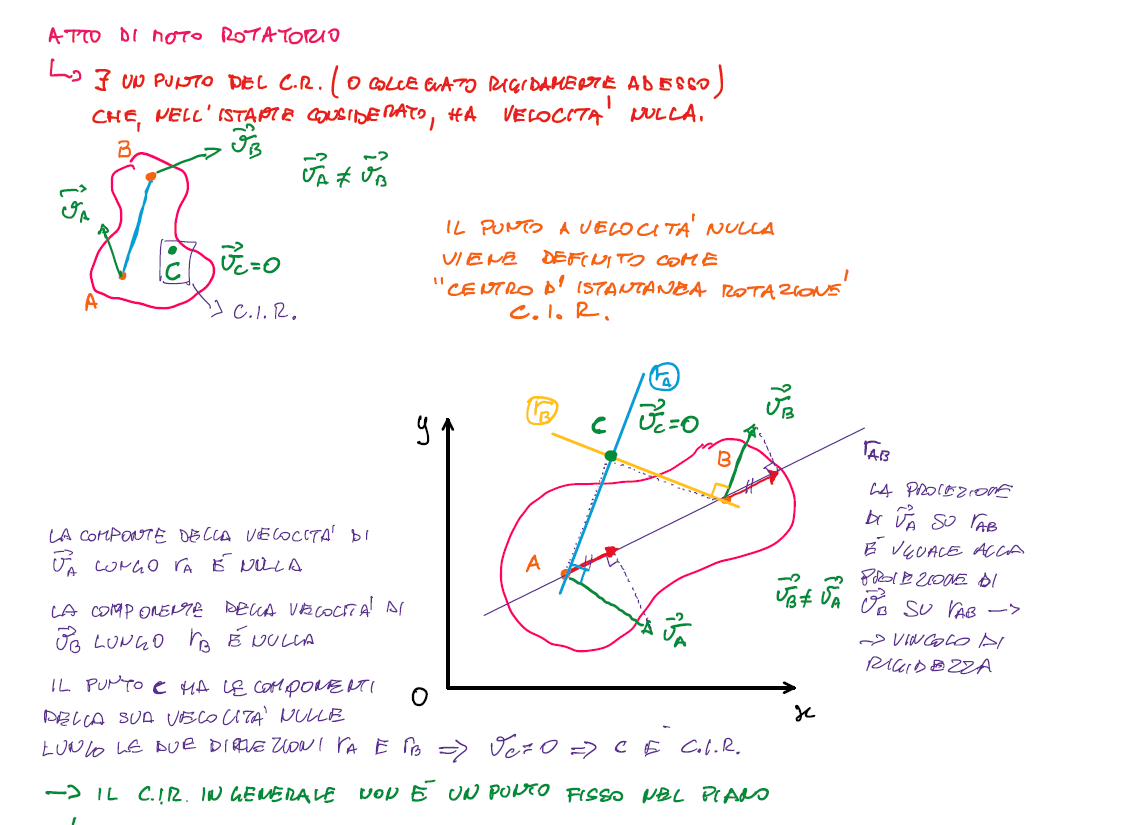 ATTO DI MOTO ROTATORIO
↳ ∃ UN PUNTO DEL C.R. (O COLLEGATO RIGIDAMENTE AD ESSO)
CHE, NELL'ISTANTE CONSIDERATO, HA VELOCITA' NULLA.
B
v⃗B
v⃗A ≠ v⃗B
v⃗A
C
v⃗C=0
A
C.I.R.
IL PUNTO A VELOCITA' NULLA
VIENE DEFINITO COME
"CENTRO D'ISTANTANEA ROTAZIONE'
C.I.R.
rA
rB
C
v⃗C=0
v⃗B
y
B
rAB
A
v⃗B ≠ v⃗A
v⃗A
O
x
LA PROIEZIONE
DI v⃗A SU rAB
E' UGUALE ALLA
PROIEZIONE DI
v⃗B SU rAB →
→ VINCOLO DI
RIGIDEZZA
LA COMPONTE DELLA VELOCITA' DI
v⃗A LUNGO rA E' NULLA
LA COMPONENTE DELLA VELOCITA' DI
v⃗B LUNGO rB E' NULLA
IL PUNTO C HA LE COMPONENTI
DELLA SUA VELOCITA' NULLE
LUNGO LE DUE DIREZIONI rA E rB ⇒ vC=0 ⇒ C E' C.I.R.
→ IL C.I.R. IN GENERALE NON E' UN PUNTO FISSO NEL PIANO